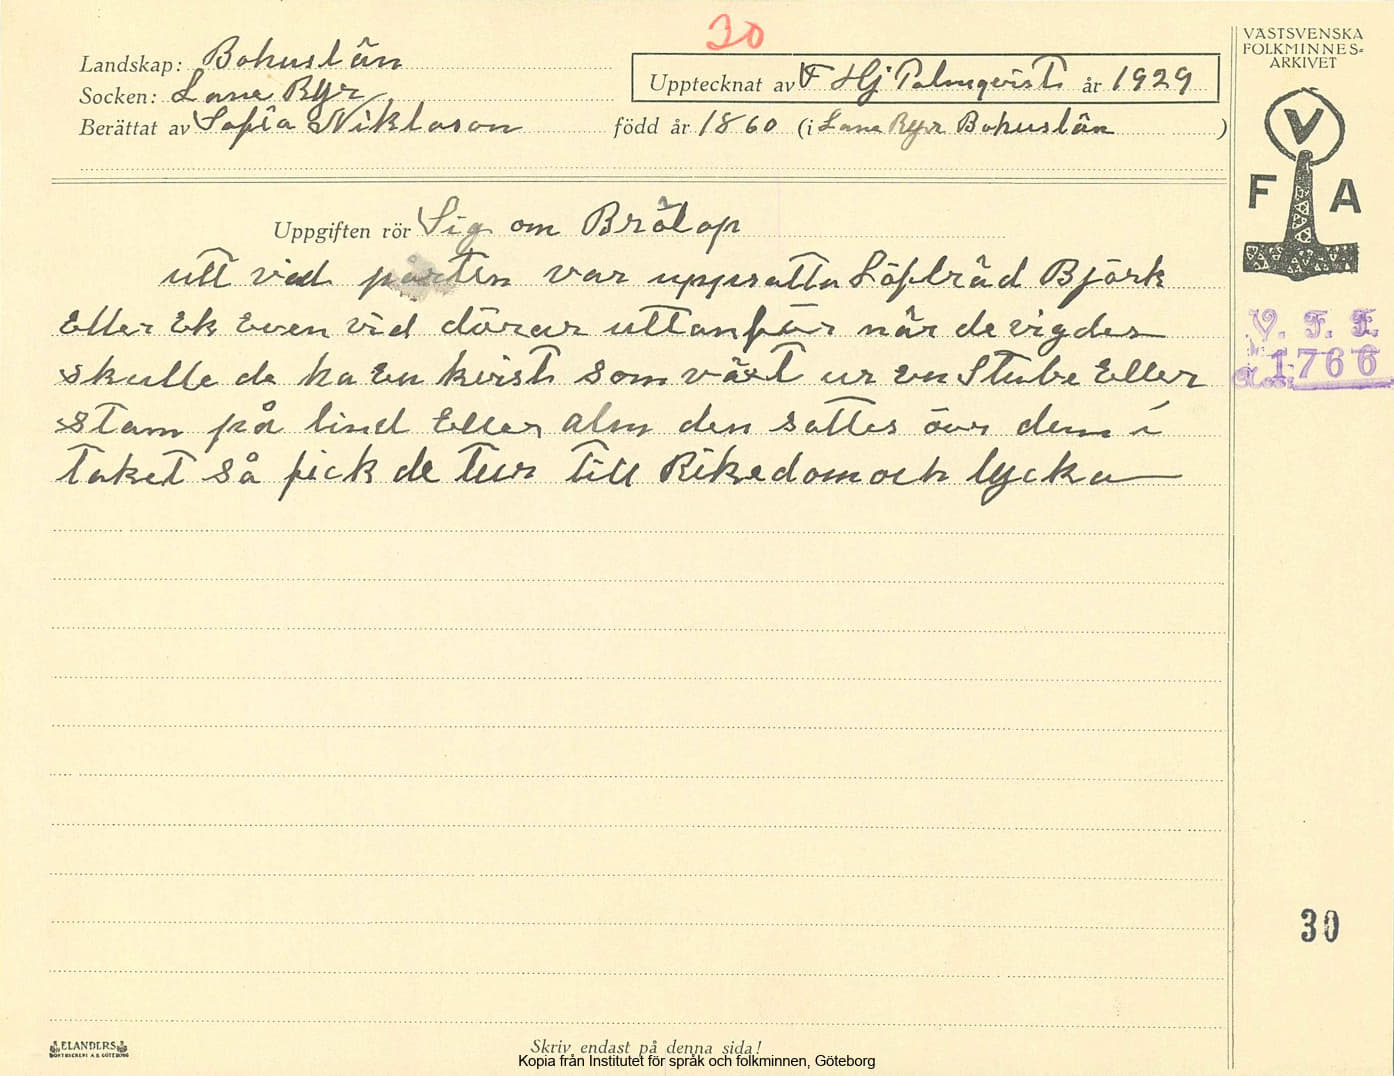 30
VÄSTSVENSKA
FOLKMINNES-
ARKIVET
Landskap: Bohuslän
Upptecknat av F Hj Palmqvist år 1929
Socken: Lane Ryr
Berättat av Sofia Niklason född år 1860 (i Lane Ryr Bohuslän )
V
F A
Uppgiften rör Sig om Brölop
utt vid porten var uppsatta Löfträd Björk
Eller Ek Even vid dörar uttanför när de vigdes
skulle de ha En kvist som växt ur en Stube Eller
stam på lind Eller alm den sattes över dem i
taket så fick de tur till Rikedom och lycka
V. F. F.
1766
30
ELANDERS
BOKTRYCKERI A.B. GÖTEBORG
Skriv endast på denna sida!
Kopia från Institutet för språk och folkminnen, Göteborg